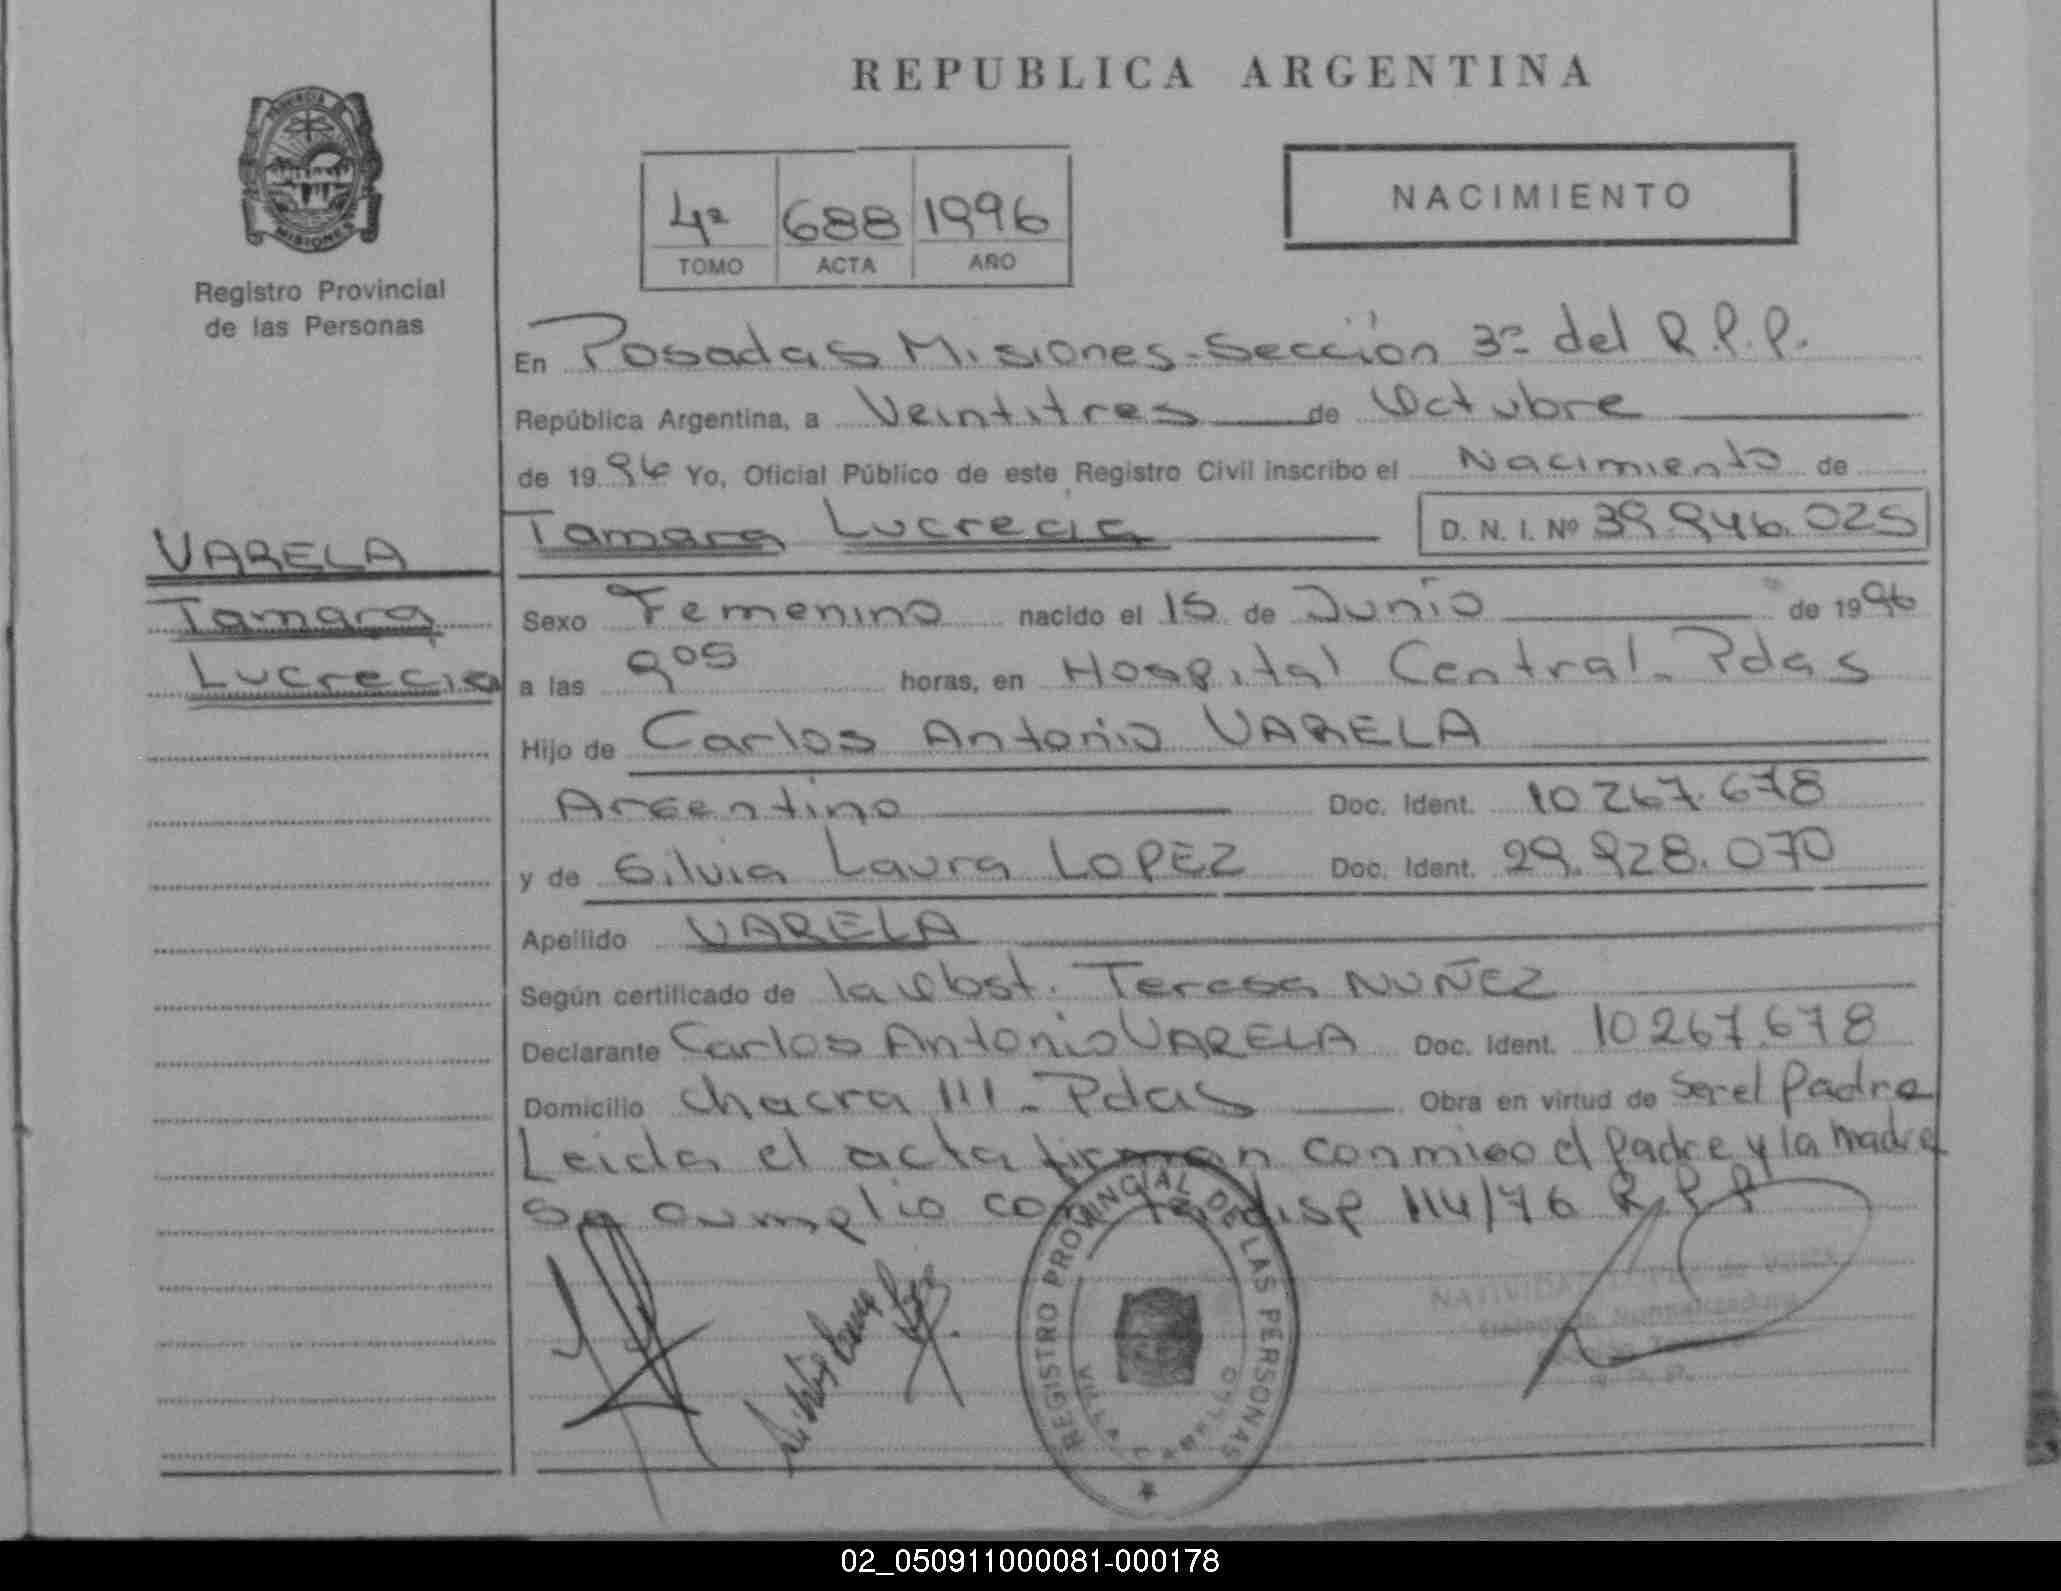 REPUBLICA ARGENTINA
PROVINCIA DE
MISIONES
Registro Provincial
de las Personas
4ª 688 1996
TOMO ACTA AÑO
NACIMIENTO
En Posadas Misiones-Sección 3ª del R.P.P.
República Argentina, a Veintitres de Octubre
de 1996 Yo, Oficial Público de este Registro Civil inscribo el Nacimiento de
Tamara Lucrecia D. N. I. Nº 39.946.025
VARELA
Tamara
Lucrecia
Sexo Femenino nacido el 15 de Junio de 1996
a las 9 05 horas, en Hospital Central-Pdas
Hijo de Carlos Antonio VARELA
Argentino Doc. Ident. 10267.678
y de Silvia Laura LOPEZ Doc. Ident. 29.928.070
Apellido VARELA
Según certificado de la Obst. Teresa NUÑEZ
Declarante Carlos Antonio VARELA Doc. Ident. 10267.678
Domicilio chacra 111-Pdas Obra en virtud de ser el Padre
Leida el acta firman conmigo el Padre y la Madre
Se cumplio con la disp 114/76 R.P.P
REGISTRO PROVINCIAL DE LAS PERSONAS
VILLA CABELLO
02_050911000081-000178